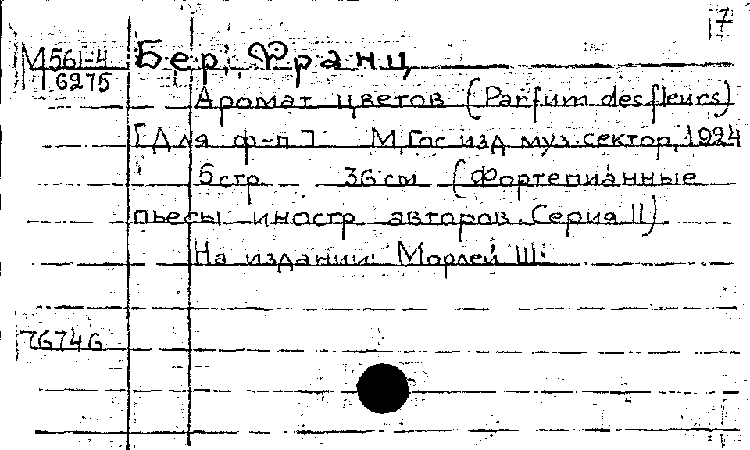 7
М561-4 Бер, Франц
6275
Аромат цветов (Parfum des fleurs)
[Для ф-п] М, Гос изд муз. сектор, 1924
5 стр 36 см (Фортепианные
пьесы иностр авторов. Серия II)
На издании: Морлей Ш.
76746